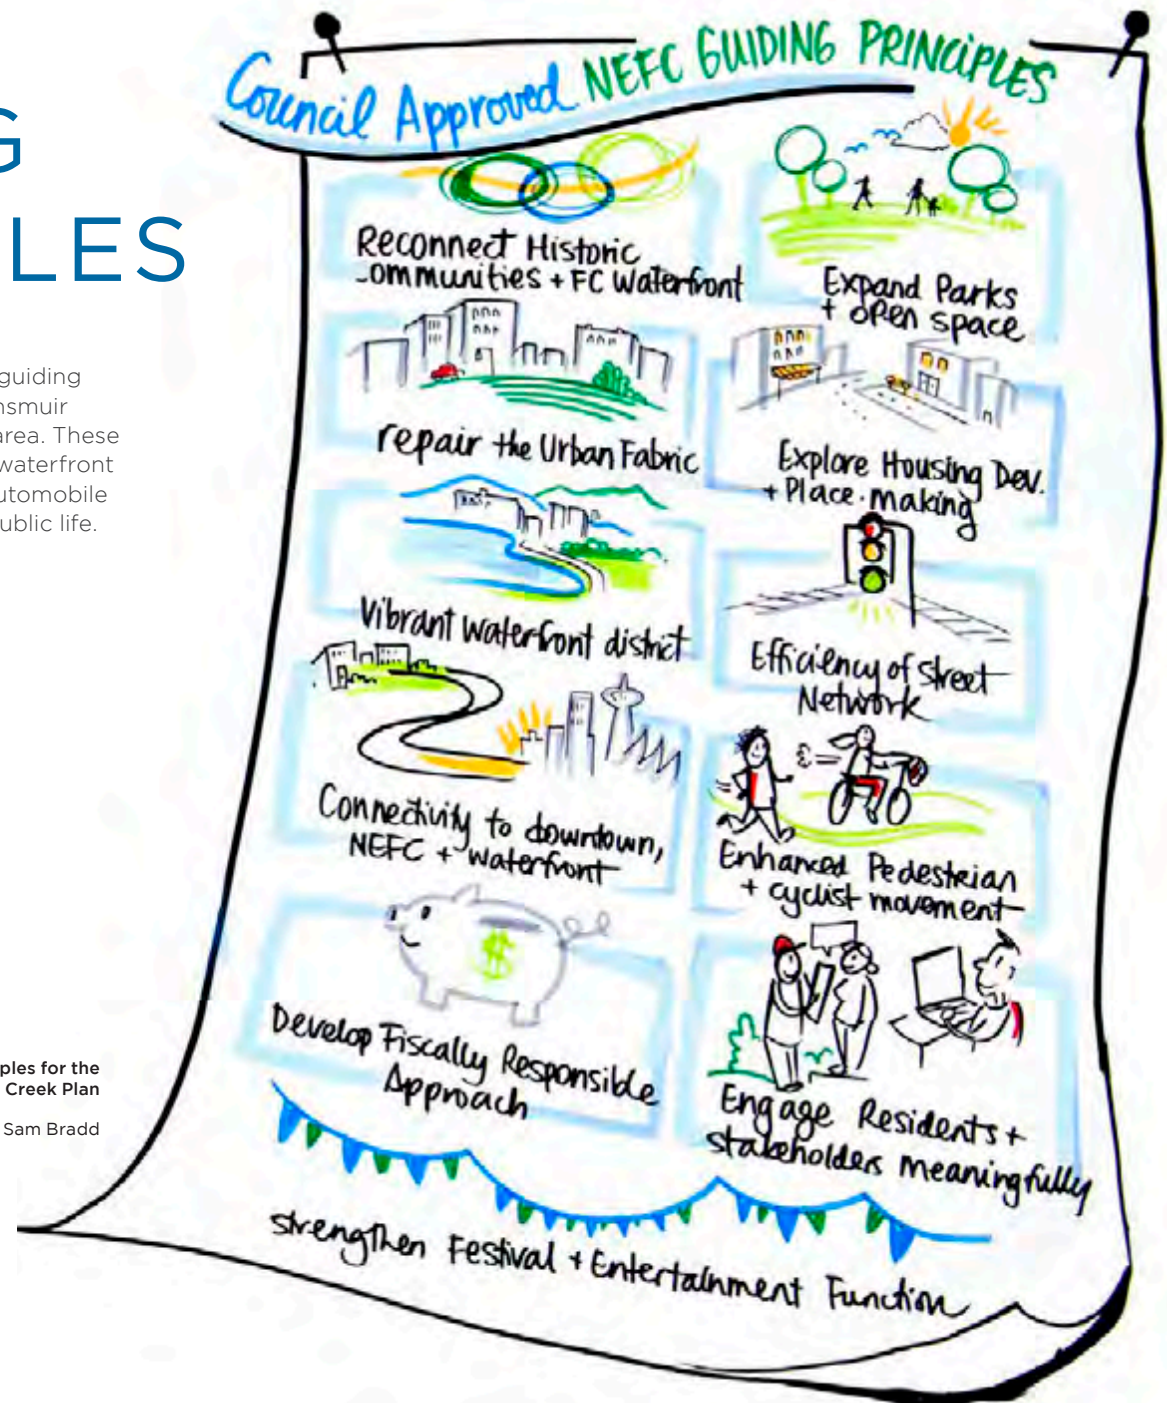 G
LES
guiding
nsmuir
area. These
waterfront
utomobile
ublic life.
ples for the
Creek Plan
Sam Bradd
Council Approved NEFC GUIDING PRINCIPLES
Reconnect Historic
ommunities + FC Waterfront
Expand Parks
+ open space
repair the Urban Fabric
Explore Housing Dev.
+ Place-making
Vibrant waterfront district
Efficiency of Street
Network
Connectivity to downtown,
NEFC + waterfront
Enhanced Pedestrian
+ cyclist movement
$
Develop Fiscally Responsible
Approach
Engage Residents +
stakeholders meaningfully
strengthen Festival + Entertainment Function